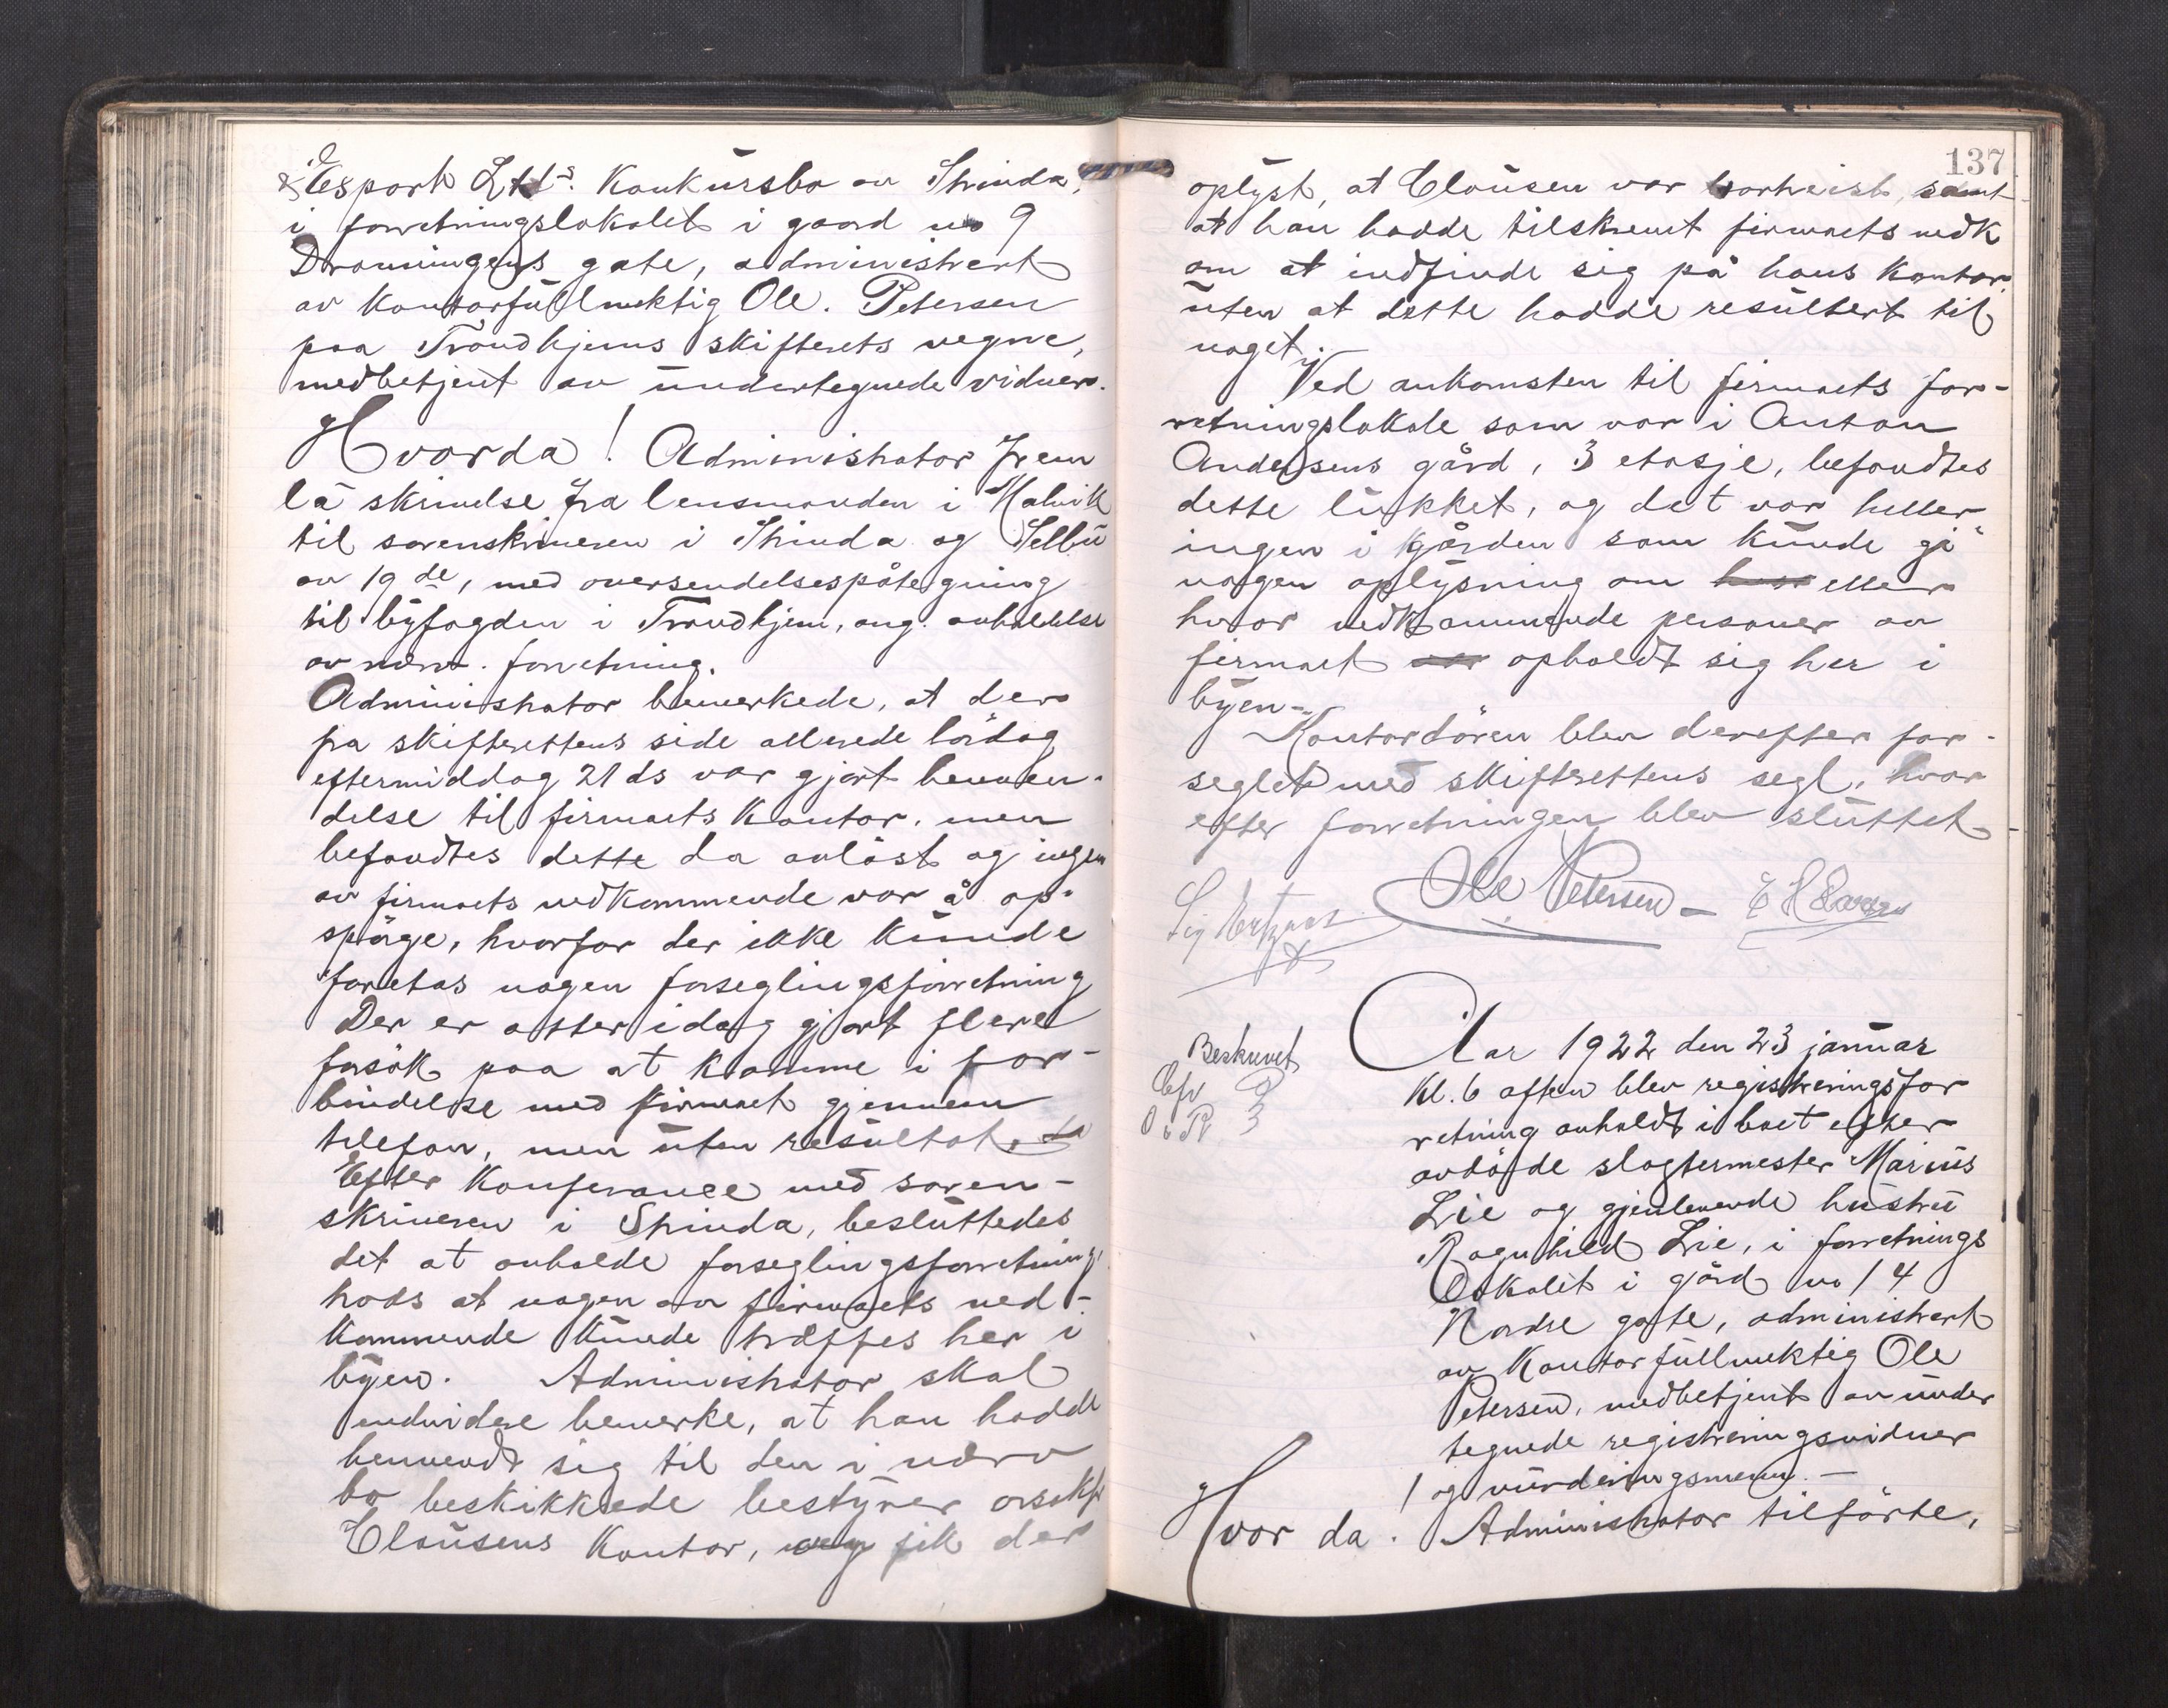 & Export Ltds. Konkursbo av Strinda,
i forretningslokalet i gaard no 9
Dronningens gate, administrert
av kontorfuldmektig Ole. Petersen
paa Trondhjems skifterets vegne,
medbetjent av undertegnede vidner.
Hvorda! Administrator frem
la skrivelse fra lensmanden i Malvik
til sorenskriveren i Strinda og Selbu
av 19de, med oversendelsespåtegning
til byfogden i Trondhjem, ang. avholdelse
av nærv. forretning.
Administrator bemerkede, at der
fra skifterettens side allerede lördag
eftermiddag 21 ds var gjort henven-
delse til firmaets kontor, men
befandtes dette da avlåst og ingen
av firmaets vedkommende var å op-
spörge, hvorfor der ikke kunde
foretas nogen forseglingsforretning
Der er atter idag gjort flere
forsök paa at komme i for-
bindelse med firmaet gjennem
telefon, men uten resultat.
Efter konferance med soren-
skriveren i Strinda, besluttedes
det at avholde forseglingsforretning
hvos at nogen av firmaets ved-
kommende kunde træffes her i
byen. Administrator skal
endvidere bemerke, at han hadde
henvendt sig til den i nærv
bo beskikkede bestyrer orsakf
Clausens kontor, og fik der
137
oplyst, at Clausen var bortreist, samt
at han hadde tilskrevet firmaets vedk
om at indfinde sig på hans kontor,
uten at dette hadde resultert til
noget.
Ved ankomsten til firmaets for-
retningslokale som var i Anton
Andersens gård, 3 etasje, befandtes
dette lukket, og det var heller
ingen i gården som kunde gi
nogen oplysning om hvor eller
hvor vedkommende personer av
firmaet var opholdt sig her i
byen.-
Kontordören blev derefter for-
seglet med skifterettens segl, hvor
efter forretningen blev sluttet
Ole Petersen - E H Larsen
Beskrevet
Aar 1922 den 23 januar
kl. 6 aften blev registreringsfor
retning avholdt i boet efter
avdöde slagtermester Marius
Lie og gjenlevende hustru
Ragnhild Lie, i forretnings
lokalet i gård no 14
Nordre gate, administrert
av kontorfullmektig Ole
Petersen, medbetjent av under
tegnede registreringsvidner
og vurderingsmenn.-
Hvor da. Administrator tilförte,